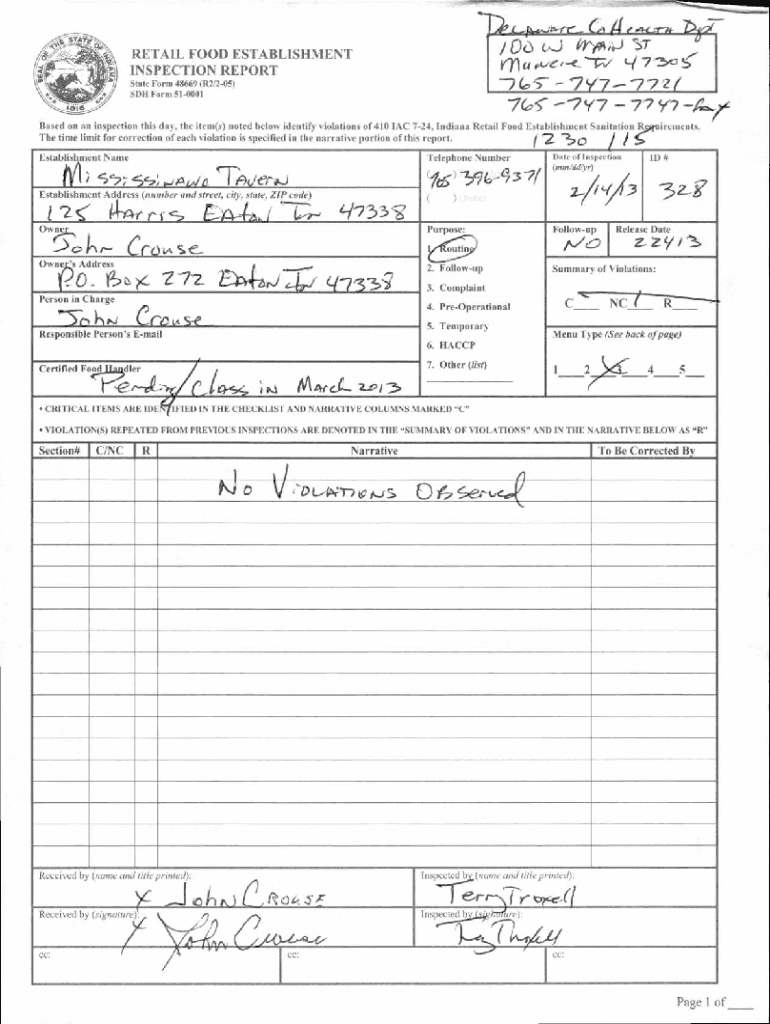 DELAWARE Co HEALTH Dpt
100 W MAIN ST
Muncie IN 47305
765-747-7721
765-747-7747-fax
SEAL OF THE STATE OF INDIANA
1816
RETAIL FOOD ESTABLISHMENT
INSPECTION REPORT
State Form 48669 (R2/2-05)
SDH Form 51-0001
Based on an inspection this day, the item(s) noted below identify violations of 410 IAC 7-24, Indiana Retail Food Establishment Sanitation Requirements.
The time limit for correction of each violation is specified in the narrative portion of this report.
1230 / 15
Establishment Name
Mississinawa TAvern
Telephone Number
(765) 396-9371
( )
Date of Inspection
(mm/dd/yr)
2/14/13
ID #
328
Establishment Address (number and street, city, state, ZIP code)
125 HArris EAton In 47338
Owner
John Crouse
Purpose:
1. Routine
2. Follow-up
3. Complaint
4. Pre-Operational
5. Temporary
6. HACCP
7. Other (list)
Follow-up
NO
Release Date
22413
Owner's Address
P.O. Box 272 EAton In 47338
Summary of Violations:
C___ NC___ R___
Person in Charge
John Crouse
Responsible Person's E-mail
Menu Type (See back of page)
1___2___X___4___5___
Certified Food Handler
Pending/Class in March 2013
• CRITICAL ITEMS ARE IDENTIFIED IN THE CHECKLIST AND NARRATIVE COLUMNS MARKED "C"
• VIOLATION(S) REPEATED FROM PREVIOUS INSPECTIONS ARE DENOTED IN THE "SUMMARY OF VIOLATIONS" AND IN THE NARRATIVE BELOW AS "R"
Section# C/NC R Narrative To Be Corrected By
No Violations Observed
Received by (name and title printed):
x John Crouse
Inspected by (name and title printed):
Terry Troxell
Received by (signature):
x John Crouse
Inspected by (signature):
Terry Troxell
cc: cc: cc:
Page 1 of ___